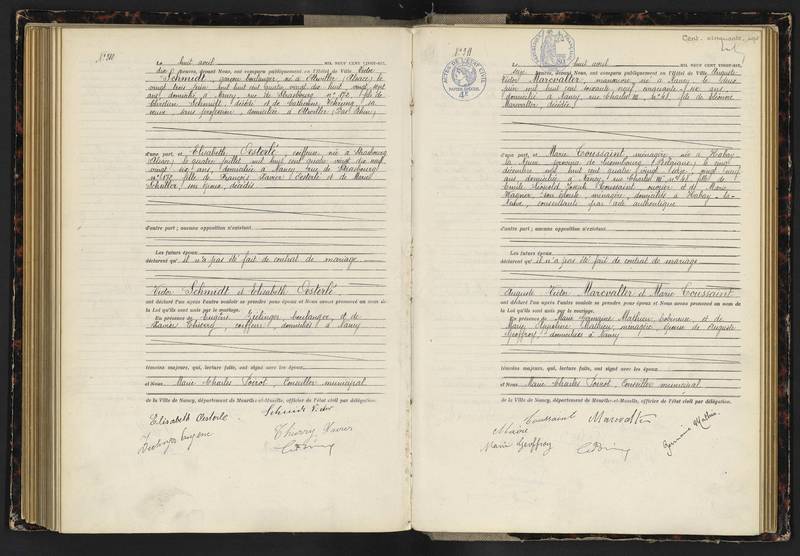 Le huit avril MIL NEUF CENT VINGT-SIX,
dix heures, devant Nous, ont comparu publiquement en l'Hôtel de Ville Victor
Schmidt, garçon boulanger, né à Ottwiller (Alsace) le
vingt trois juin mil huit cent quatre vingt dix huit, vingt sept
ans, domicilié à Nancy rue de Strasbourg n° 172, fils de
Chrétien Schmidt, décédé et de Catherine sa
veuve sans profession, domiciliée à Ottwiller (Bas Rhin)
d'une part, et Elisabeth Oesterlé, coiffeuse, née à Strasbourg
(Alsace) le quatre juillet mil huit cent quatre vingt dix neuf
vingt six ans, domiciliée à Nancy rue de Strasbourg
n° 172 fille de François Xavier Oesterlé et de Marie
Schuller, son épouse, décédés
d'autre part ; aucune opposition n'existant.
Les futurs époux
déclarent qu'il n'a pas été fait de contrat de mariage
Victor Schmidt et Elisabeth Oesterlé,
ont déclaré l'un après l'autre vouloir se prendre pour époux et Nous avons prononcé au nom de
la Loi qu'ils sont unis par le mariage.
En présence de Eugène boulanger, et de
Xavier Thierry, coiffeur, domiciliés à Nancy
témoins majeurs, qui, lecture faite, ont signé avec les époux
et Nous, Marie Charles Poirot, Conseiller municipal
de la Ville de Nancy, département de Meurthe-et-Moselle, officier de l'état civil par délégation.
Elisabeth Oesterlé Schmidt Victor
Eugène Thierry Xavier
Cent cinquante
ACTES DE L'ÉTAT CIVIL
PAPIER SPÉCIAL
Le huit avril MIL NEUF CENT VINGT-SIX,
seize heures, devant Nous, ont comparu publiquement en l'Hôtel de Ville Auguste
Victor Marcvalter, manœuvre, né à Nancy, le
juin mil huit cent soixante neuf, cinquante six ans,
domicilié à Nancy, rue Charles III, n° 41 fils de
Marcvalter, décédée
d'une part, et Marie Toussaint, ménagère, née à Habay
la Neuve province de Luxembourg (Belgique) le cinq
décembre mil huit cent quatre vingt seize, vingt neuf
ans, domiciliée à Nancy, rue Charles III, n° 41 fille de
Emile Léopold Joseph Toussaint, ouvrier et de Marie
Wagner son épouse, ménagère, domiciliés à Habay-la-
Neuve, consentants par acte authentique
d'autre part ; aucune opposition n'existant.
Les futurs époux
déclarent qu'il n'a pas été fait de contrat de mariage
Auguste Victor Marcvalter et Marie Toussaint
ont déclaré l'un après l'autre vouloir se prendre pour époux et Nous avons prononcé au nom de
la Loi qu'ils sont unis par le mariage.
En présence de Marie Germaine Mathieu, et de
Marie Augustine Mathieu, ménagère, épouse de Auguste
Geoffroy, domiciliées à Nancy
témoins majeurs, qui, lecture faite, ont signé avec les époux
et Nous, Marie Charles Poirot, Conseiller municipal
de la Ville de Nancy, département de Meurthe-et-Moselle, officier de l'état civil par délégation.
Toussaint Marcvalter
Marie
Marie Geoffroy Germaine Mathieu